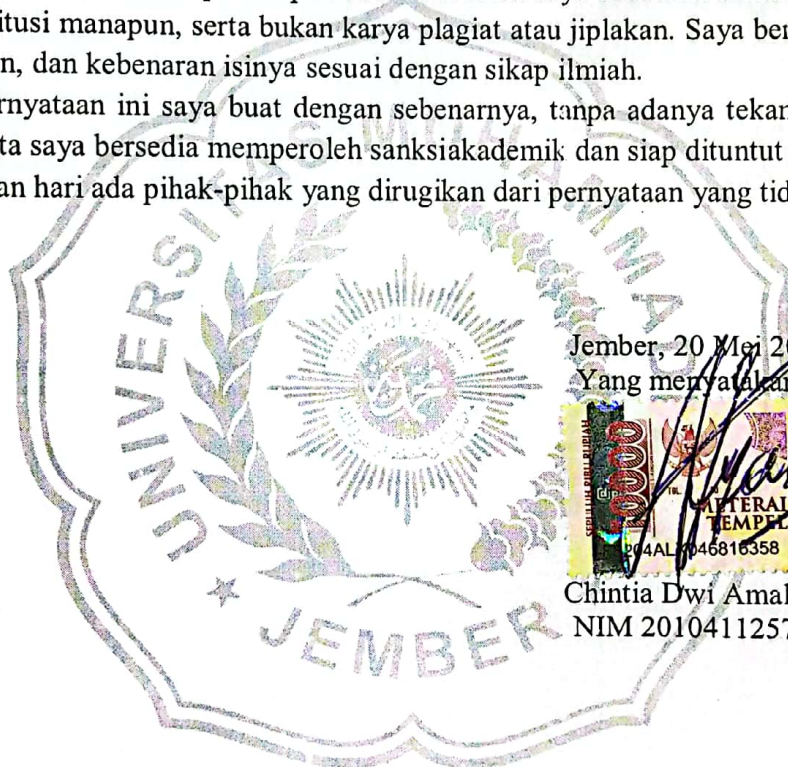 itusi manapun, serta bukan karya plagiat atau jiplakan. Saya ber
n, dan kebenaran isinya sesuai dengan sikap ilmiah.
rnyataan ini saya buat dengan sebenarnya, tanpa adanya tekan
ta saya bersedia memperoleh sanksiakademik dan siap dituntut
an hari ada pihak-pihak yang dirugikan dari pernyataan yang tid
UNIVERSITAS MUHAMMADI
JEMBER
Jember, 20 Mei 20
Yang menyatakan
SEPULUH RIBU RUPIAH
10000
djp
TGL
METERAI
TEMPEL
204ALX046816358
Chintia Dwi Amal
NIM 2010411257